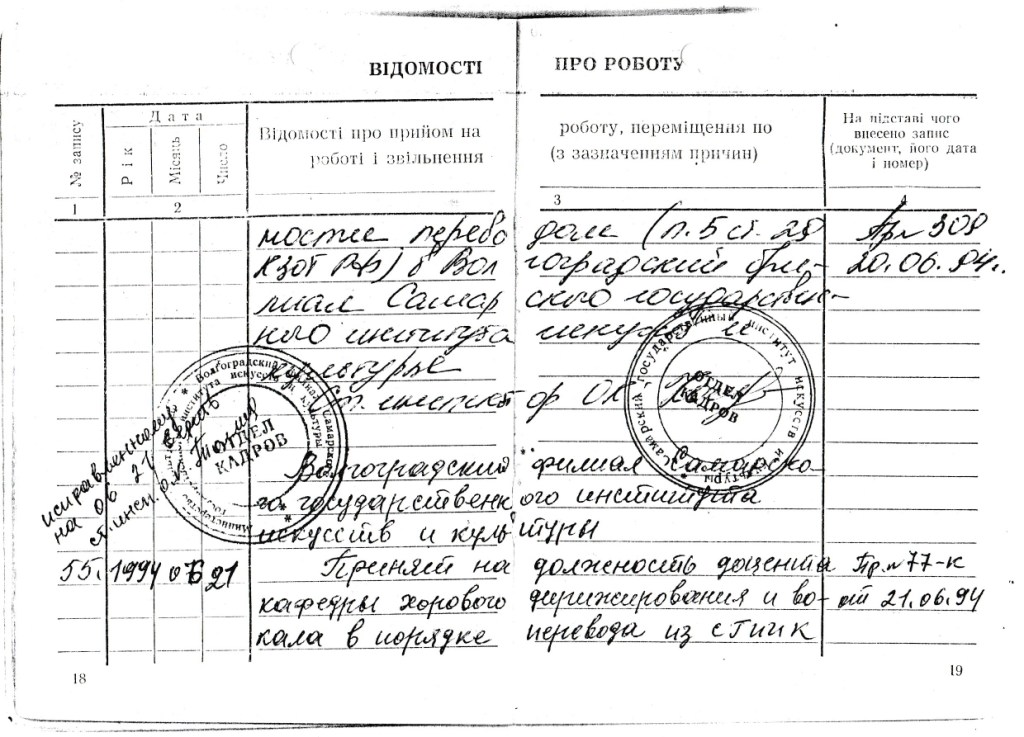 ВІДОМОСТІ ПРО РОБОТУ
№ запису
Дата
Рік
Місяць
Число
Відомості про прийом на роботу, переміщення по
роботі і звільнення (з зазначенням причин)
На підставі чого
внесено запис
(документ, його дата
і номер)
1 2 3 4
мостже перево дом (п.5 ст. 29 Пр. № 308
КЗОТ РФ) в Вол гоградский фи- 20.06.94г.
лиал Самар ского государствен-
ного института искусств и
культуры
Ст. инспект ор ОК
Волгоградский филиал Самарско-
го государственн ого института
искусств и куль туры
55. 1994 06 21 Принят на должность доцента Пр. № 77-к
кафедры хорового дирижирования и во- от 21.06.94
кала в порядке перевода из СГИИК
исправленному
на 06 21 верить
ст. инсп. ок
Волгоградский филиал Самарского
института искусств и культуры
Министерство
ОТДЕЛ
КАДРОВ
Самарский государственный институт искусств и культуры
ОТДЕЛ
КАДРОВ
18
19